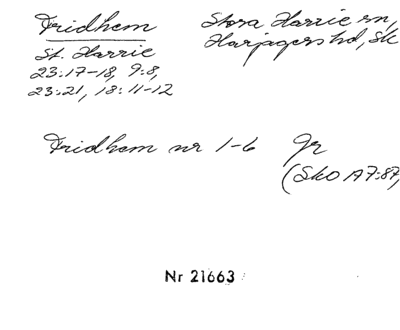 Fridhem
St. Harrie
23:17-18, 9:8,
23:21, 18:11-12
Stora Harrie sn,
Harjagers hd, Sk
Fridhem nr 1-6 Gr
(SkO A7:87,
Nr 21663